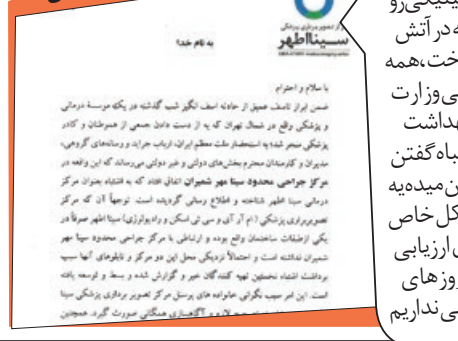 مرکز تصویربرداری پزشکی
سـینااطهر
به نام خدا
با سلام و احترام
ضمن ابراز تاسف عمیق از حادثه اسف انگیز شب گذشته در یک موسسه درمانی
و پزشکی واقع در شمال تهران که به از دست دادن جمعی از هموطنان و کادر
پزشکی منجر شد؛ به استحضار ملت معظم ایران، ارباب جراید و رسانه‌های گروهی،
مدیران و کارمندان محترم بخش‌های دولتی و غیر دولتی می‌رساند که این واقعه در
مرکز جراحی محدود سینا مهر شمیران اتفاق افتاد که به اشتباه بعنوان مرکز
درمانی سینا اطهر شناخته و اطلاع رسانی گردیده است. توجهاً آن که مرکز
تصویربرداری پزشکی (ام آر آی و سی تی اسکن و رادیولوژی) سینا اطهر صرفاً در
یکی ازطبقات ساختمان واقع بوده و ارتباطی با مرکز جراحی محدود سینا مهر
شمیران نداشته است و احتمالاً نزدیکی محل این دو مرکز و تابلوهای آنها سبب
برداشت اشتباه نخستین تهیه کنندگان خبر و گزارش شده و بسط و توسعه یافته
است. این امر سبب نگرانی خانواده های پرسنل مرکز تصویر برداری پزشکی سینا
لازم و آگاهسازی همگانی صورت گیرد. همچنین
ینیکی‌رو
ه‌درآتش
خت،همه
ی‌وزارت
هداشت
تباه‌گفتن
ن‌میده‌یه
کل‌خاص
ارزیابی
روزهای
ی‌نداریم